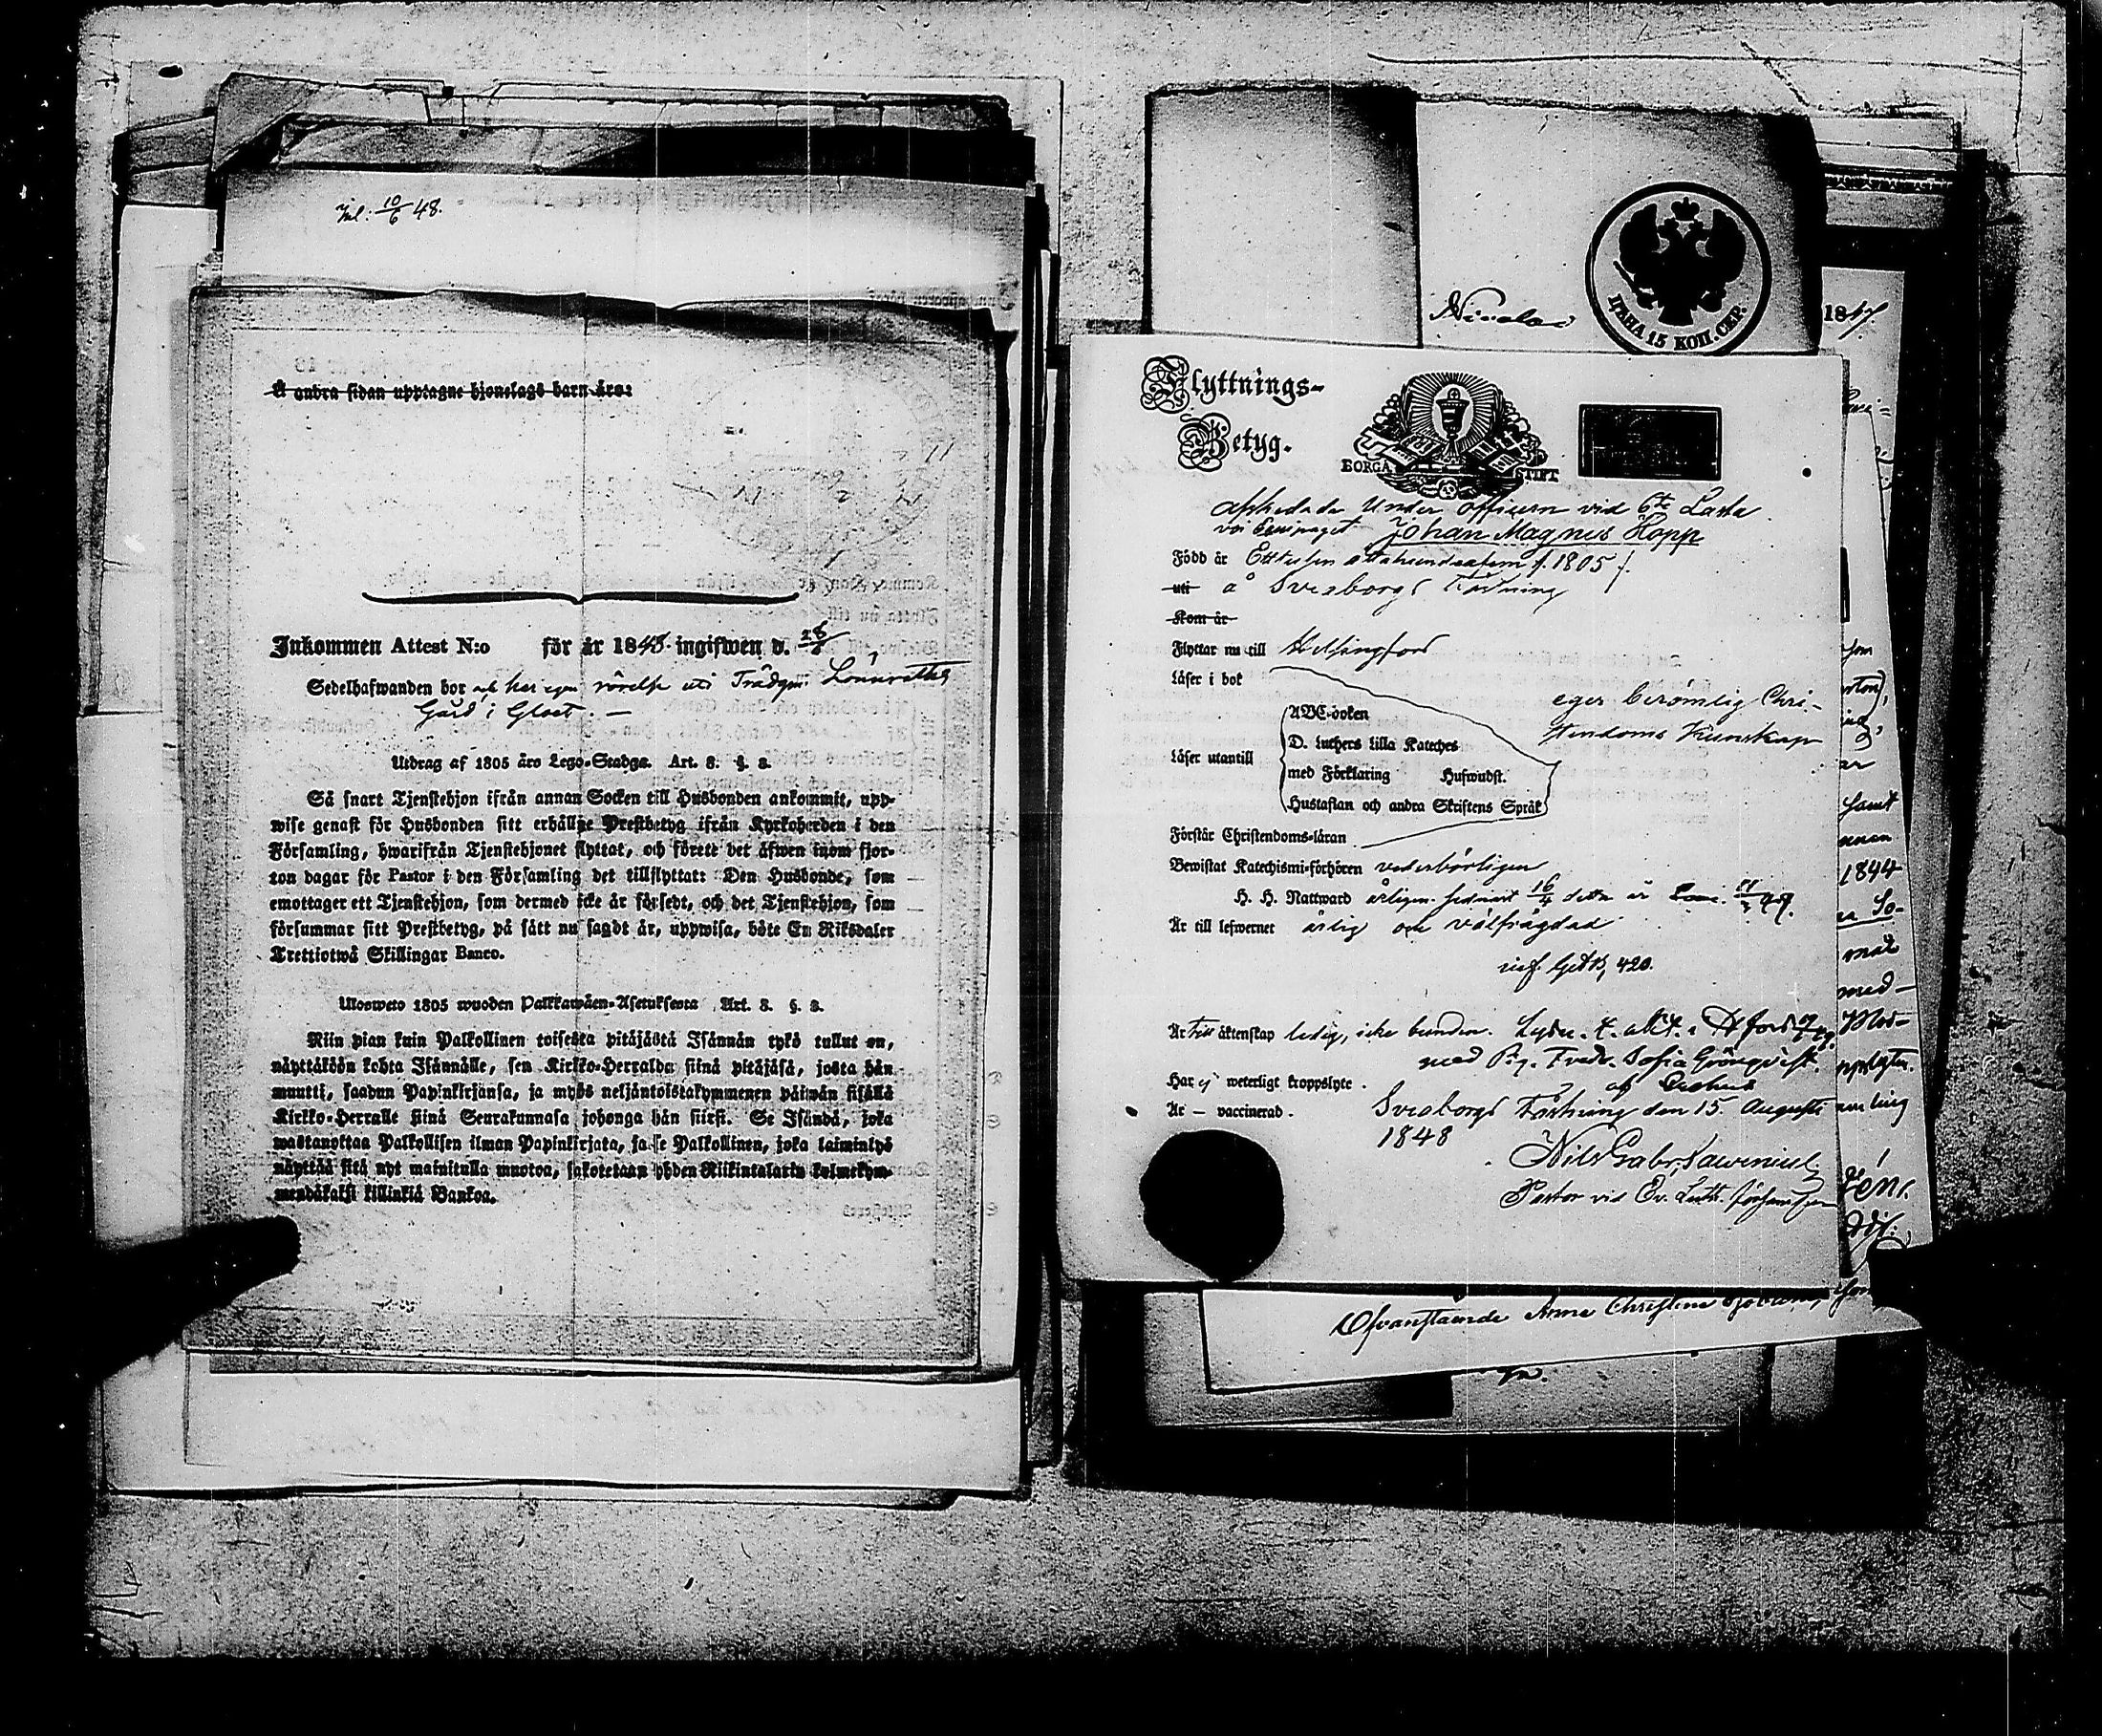 10/6 48.
Å andra sidan upptagne hjonelags barn äro:
Inkommen Attest N:o för år 1848 ingifwen d. 28/8
Sedelhafwanden bor och har egen rörelse uti Trädgm:
Gård i Gloet. —
Utdrag af 1805 års Lego-Stadga. Art. 8. §. 2.
Så snart Tjenstehjon ifrån annan Socken till Husbonden ankommit, upp-
wise genast för Husbonden sitt erhållne Prestbetyg ifrån Kyrkoherden i den
Församling, hwarifrån Tjenstehjonet flyttat, och förete det äfwen inom fjor-
ton dagar för Pastor i den Församling det tillflyttat: Den Husbonde, som
emottager ett Tjenstehjon, som dermed icke är försedt, och det Tjenstehjon, som
försummar sitt Prestbetyg, på sätt nu sagdt är, uppwisa, böte En Riksdaler
Trettiotwå Skillingar Banco.
Ulosweto 1805 wuoden Palkkawäen-Asetuksesta Art. 8. §. 2.
Niin pian kuin Palkollinen toisesta pitäjästä Isännän tykö tullut on,
näyttäköön kohta Isännälle, sen Kirkko-Herralda siinä pitäjäsä, josta hän
muutti, saadun Papinkirjansa, ja myös neljäntoistakymmenen päiwän sisällä
Kirkko-Herralle siinä Seurakunnasa johonga hän siirsi. Se Isändä, joka
wastanottaa Palkollisen ilman Papinkirjata, ja se Palkollinen, joka laiminlyö
näyttää sitä nyt mainitulla muotoa, sakotetaan yhden Riikintalarin kolmekym-
mendäkaksi killinkiä Bankoa.
Nicolai
ЦѢНА 15 КОП. СЕР.
1847.
Flyttnings-
Betyg.
BORGÅ STIFT
Afskedade Under officern vid 6te Lasta
voi Equipaget Johan Magnus Hopp
Född år Ettusen åttahundrafem /. 1805 /.
uti å Sveaborgs Fästning
Kom år
Flyttar nu till Helsingfors
Läser i bok
eger berömlig Chri-
stendoms Kunskap
ABC-boken
D. Luthers Lilla Kateches
Läser utantill
med Förklaring Hufwudst.
Hustaflan och andra Skriftens Språk
Förstår Christendoms-läran
Bewistat Katechismi-förhören vederbörligen
H. H. Nattward årligen sednast 16/4 detta år
Är till lefwernet ärlig och välfrägdad
420.
Är till äktenskap ledig, icke bunden.
med Pig. Fredr. Sofia
Har ej weterligt kroppslyte.
Är — vaccinerad.
Sveaborgs Fästning den 15. Augusti
1848
Nils Gabr.
Pastor vid Ev. Luth. församlingen
Ofvanstående Anna Christina
samt
1844
med —